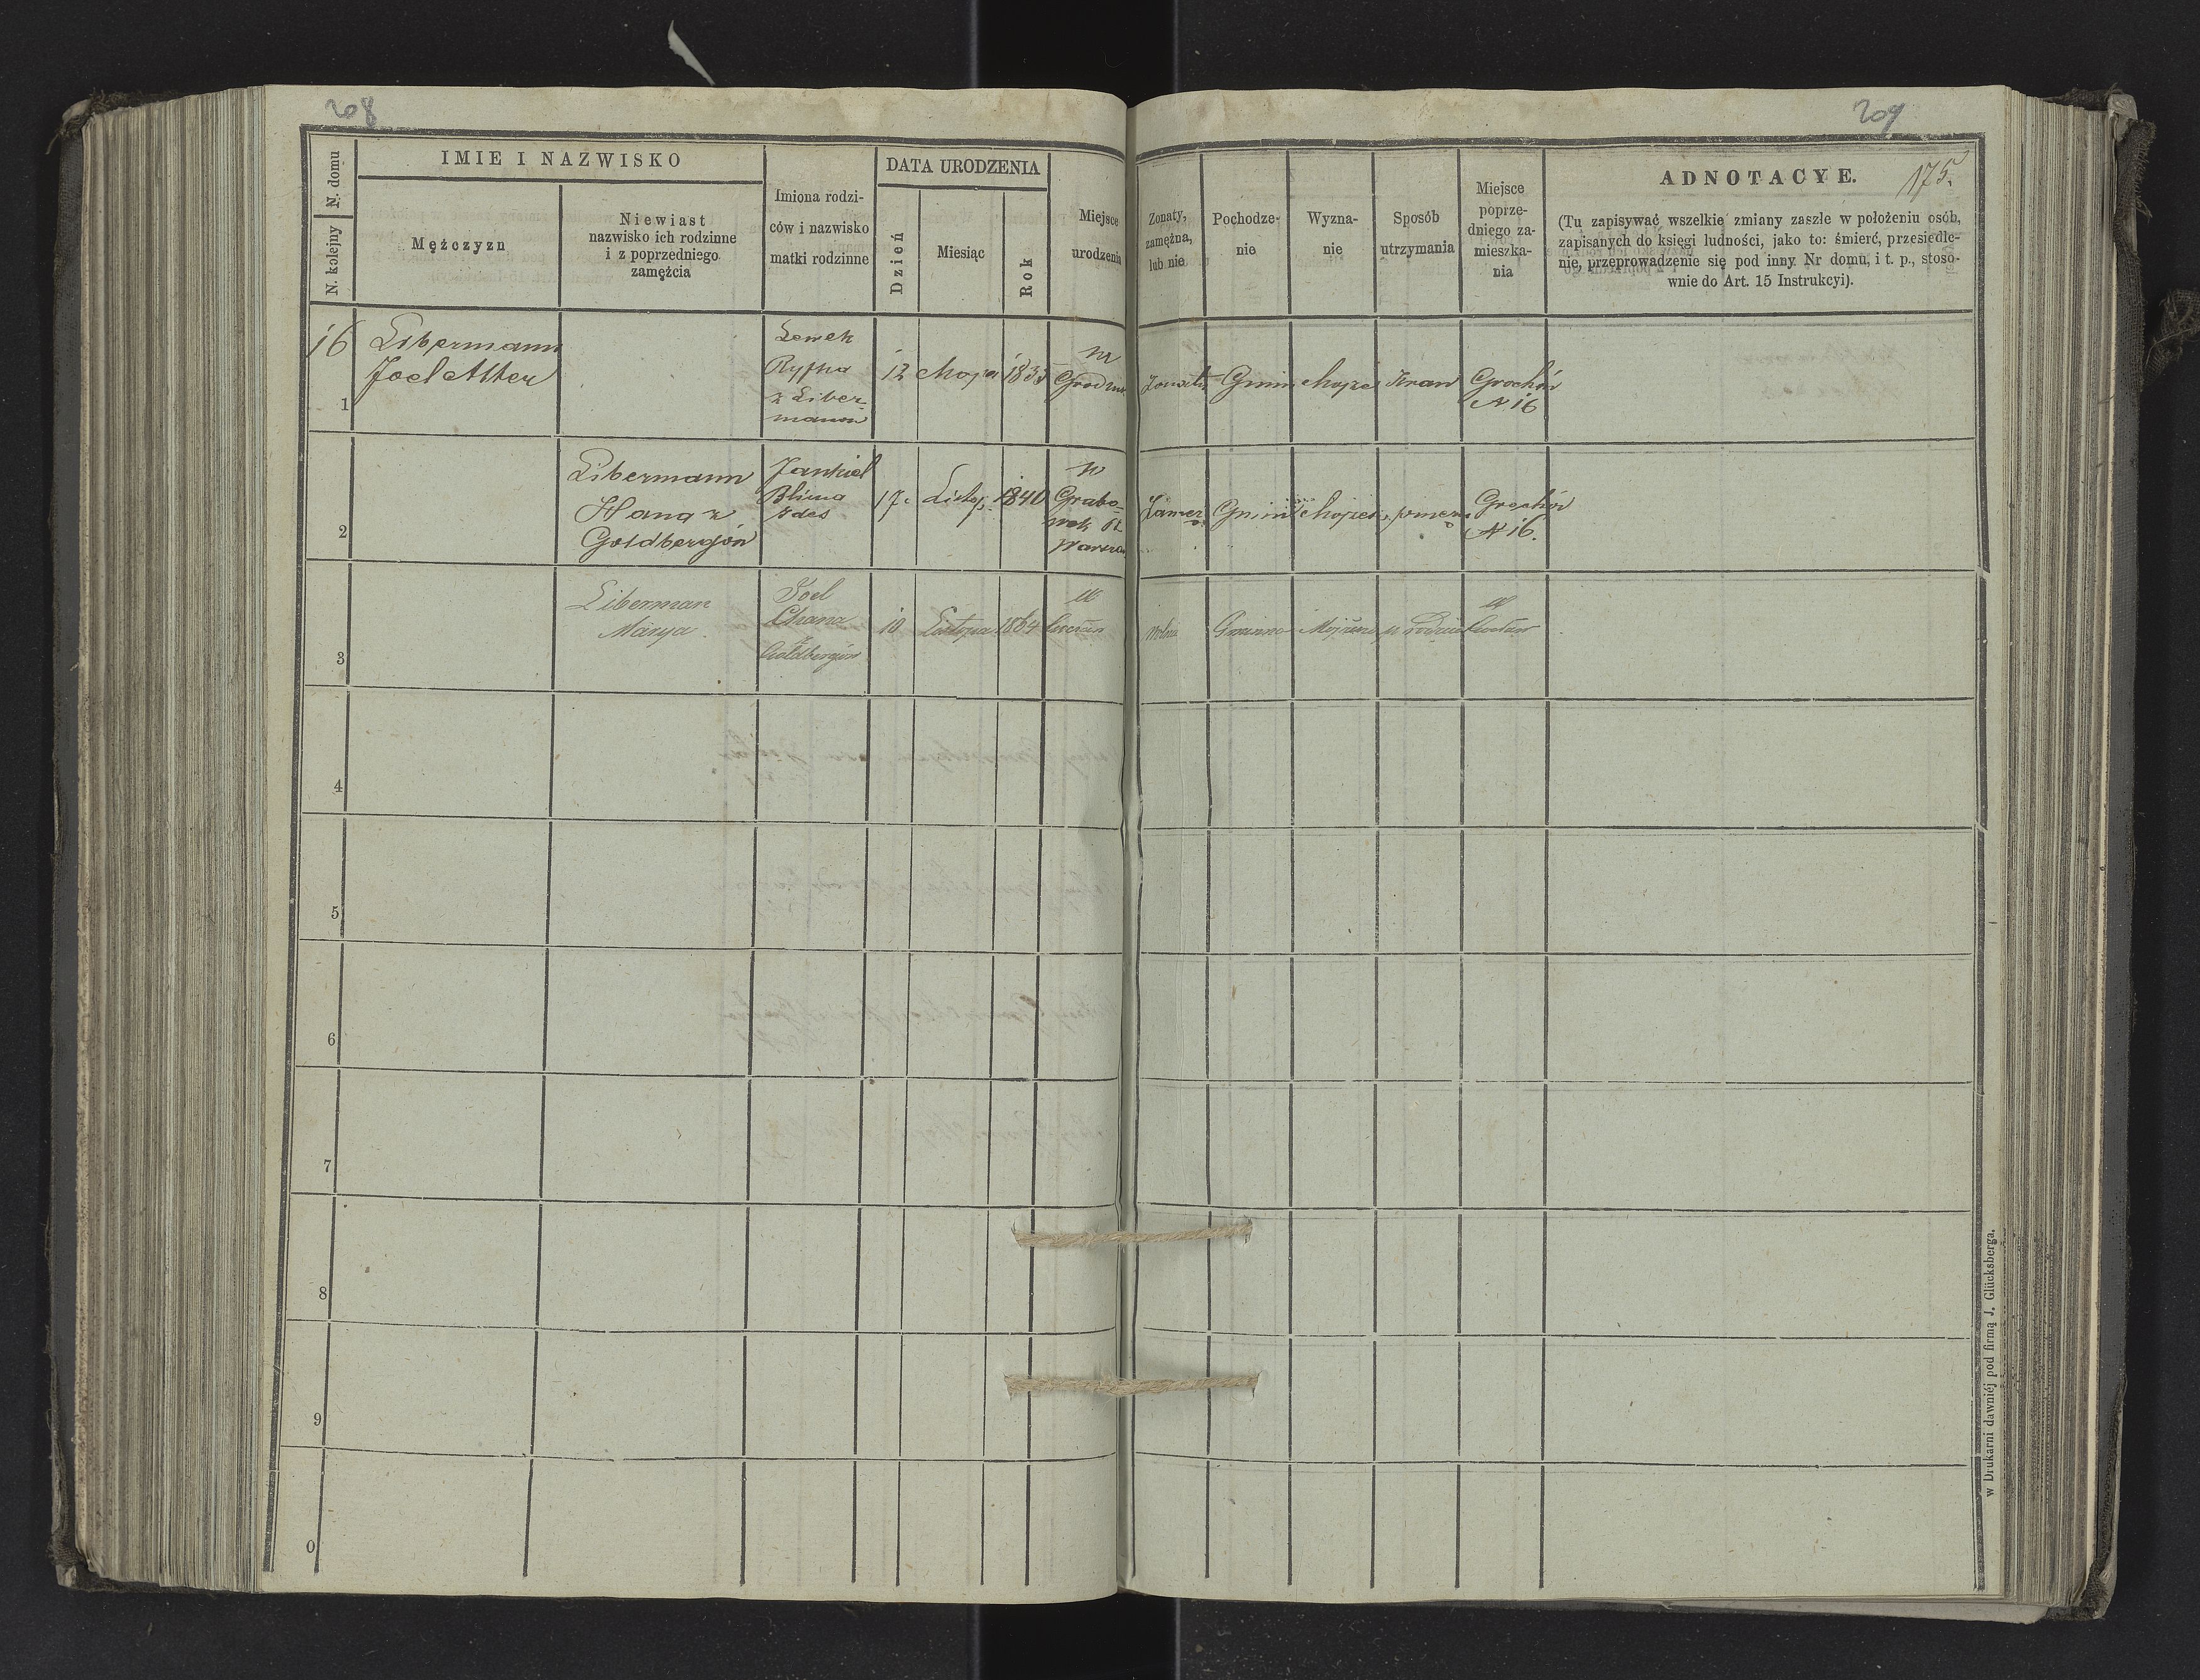 208
209
175.
N. domu
N. kolejny
IMIE I NAZWISKO
Mężczyzn
Niewiast
nazwisko ich rodzinne
i z poprzedniego
zamężcia
Imiona rodzi-
ców i nazwisko
matki rodzinne
DATA URODZENIA
Dzień
Miesiąc
Rok
Miejsce
urodzenia
Żonaty,
zamężna,
lub nie
Pochodze-
nie
Wyzna-
nie
Sposób
utrzymania
Miejsce
poprze-
dniego za-
mieszka-
nia
ADNOTACYE.
(Tu zapisywać wszelkie zmiany zaszłe w położeniu osób,
zapisanych do księgi ludności, jako to: śmierć, przesiedle-
nie, przeprowadzenie się pod inny Nr domu, i t. p., stoso-
wnie do Art. 15 Instrukcyi).
16
1
Libermann
Joel Alter
Lewek
Ryfka
z Liber-
mann
12
Maja
w
Gmin
Mojże
Kraw
Grochów
N 16
2
Libermann
Hana z
Goldbergów
Jankiel
Blima
17
Listop.
1840
w
Grabo-
wek
Zamęz
Gmin
Mojżes
Grochów
N 16.
3
Liberman
Marya
Joel
Chana
z
Goldbergów
10
Listopa
1864
w
Gminne
Mojżesz
w
4
5
6
7
8
9
0
w Drukarni dawniéj pod firmą J. Glücksberga.